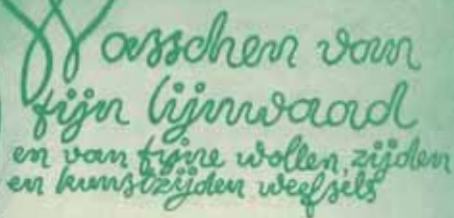 Wasschen van
fijn lijnwaad
en van fijne wollen, zijden
en kunstzijden weefsels